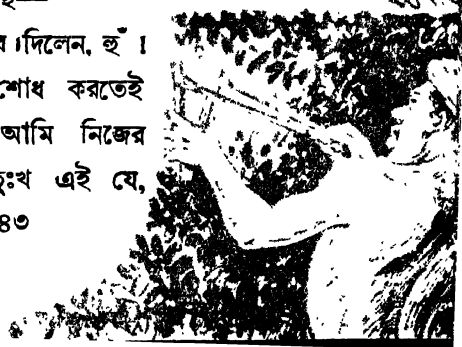 দিলেন, হুঁ ।
শোধ করতেই
আমি নিজের
দুঃখ এই যে,
৪৩